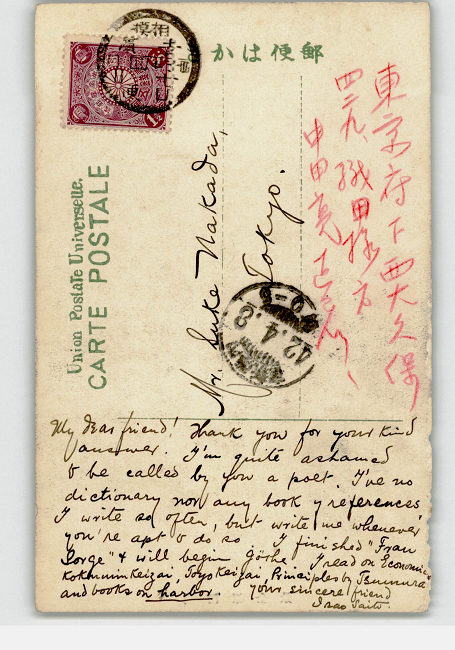 郵便はかき
Union Postale Universelle.
CARTE POSTALE
相模
東京府下西大久保
四二九、織田様方
中田亮
Mr. Suke Nakada,
Tokyo.
42.4.8
My dear friend! Thank you for your kind
answer. I'm quite ashamed
to be called by you a poet. I've no
dictionary nor any book of references
I write so often, but write me whenever
you're apt to do so I finished "Frau
Sorge" & will begin göthe. I read on Economics
Kokuminkeizai, Toyokeizai, Principles by Tsumura
and books on harbor. Your sincere friend
Isao Saito.